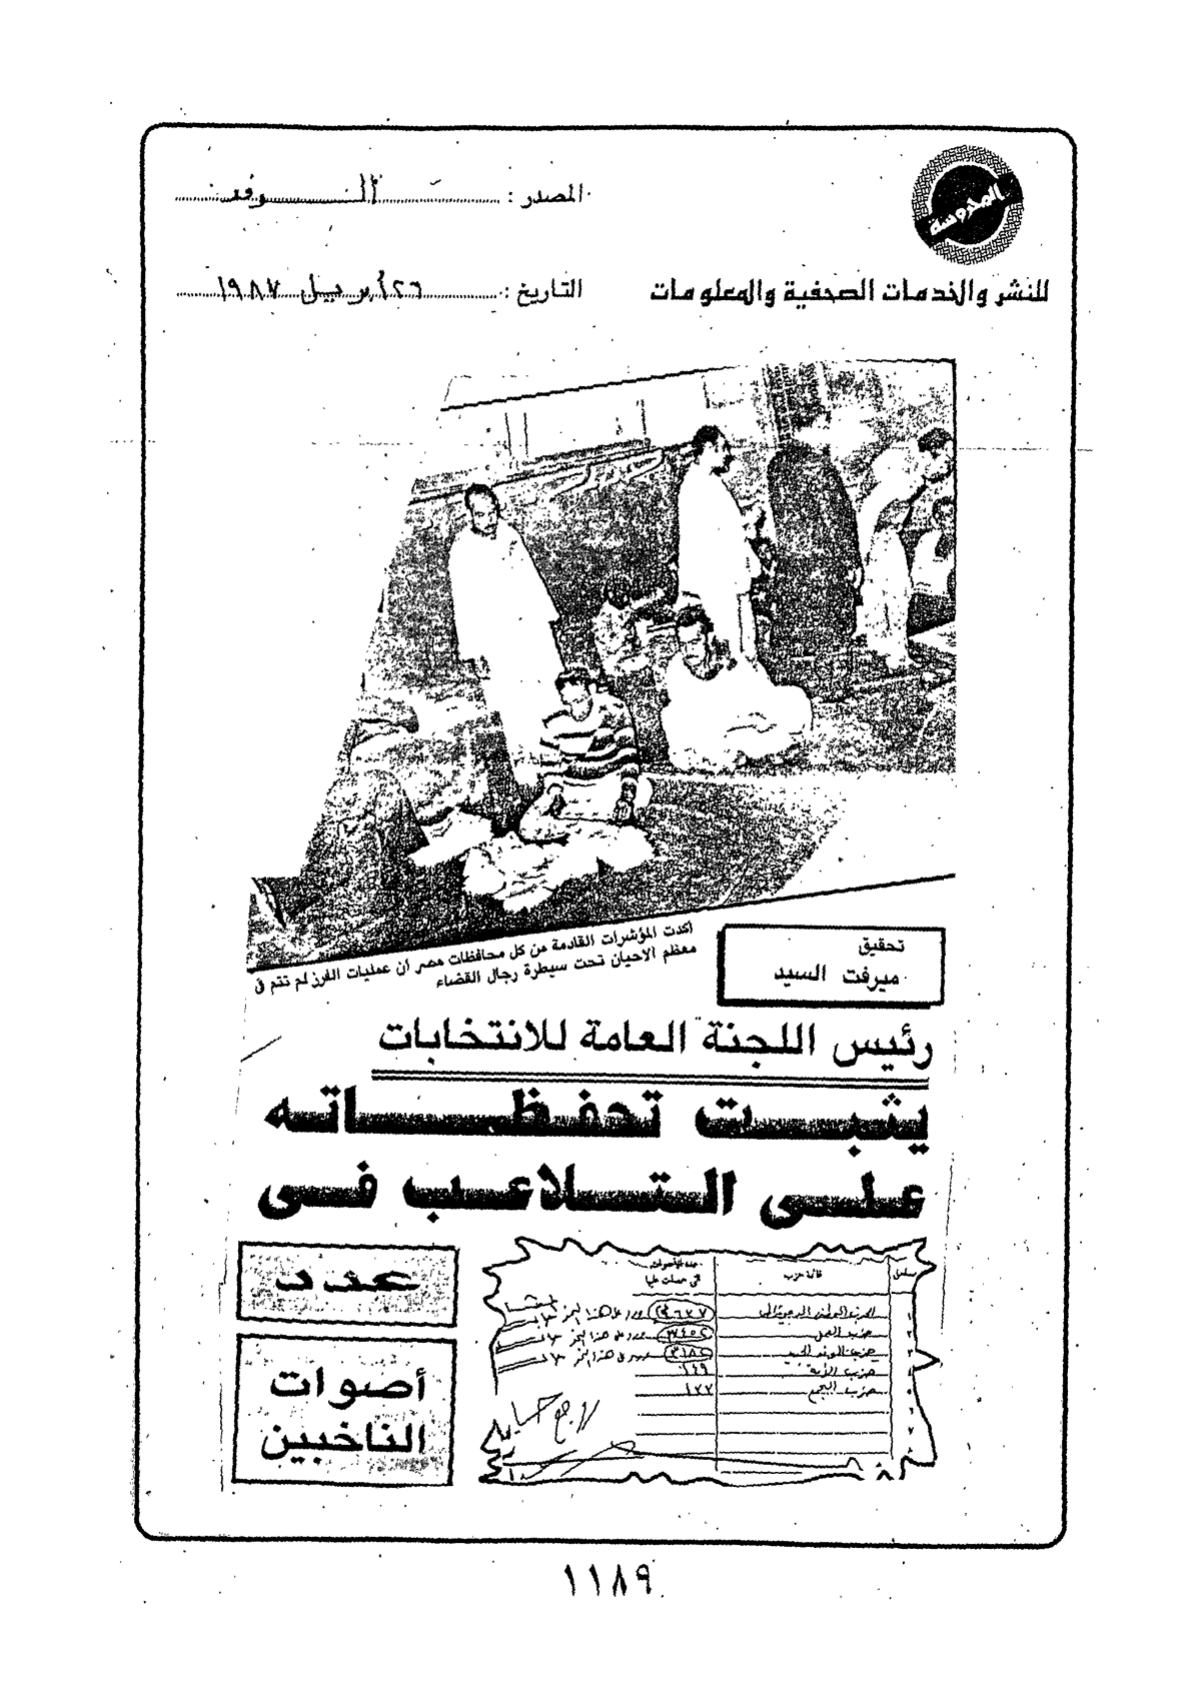 المحروسة
للنشر والخدمات الصحفية والمعلومات
المصدر : الوفد
التاريخ : ٢٦ أبريل ١٩٨٧
أكدت المؤشرات القادمة من كل محافظات مصر ان عمليات الفرز لم تتم فى
معظم الاحيان تحت سيطرة رجال القضاء
تحقيق
ميرفت السيد
رئيس اللجنة العامة للانتخابات
يثبت تحفظاته
على التلاعب فى
عدد
أصوات
الناخبين
مسلسل
قائمة حزب
عدد الأصوات
التى حصلت عليها
١ الحزب الوطنى الديمقراطى
٢ حزب العمل
٣ حزب الوفد الجديد
٤ حزب الأمة ١٤٩
٥ حزب التجمع ١٢٢
١١٨٩